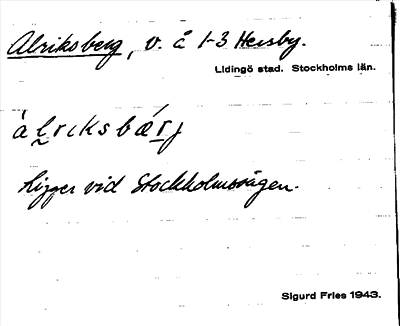 Alriksberg, v. å 1-3 Hersby.
Lidingö stad. Stockholms län.
àl̰riksbǽr̠j
Ligger vid Stockholmsvägen.
Sigurd Fries 1943.